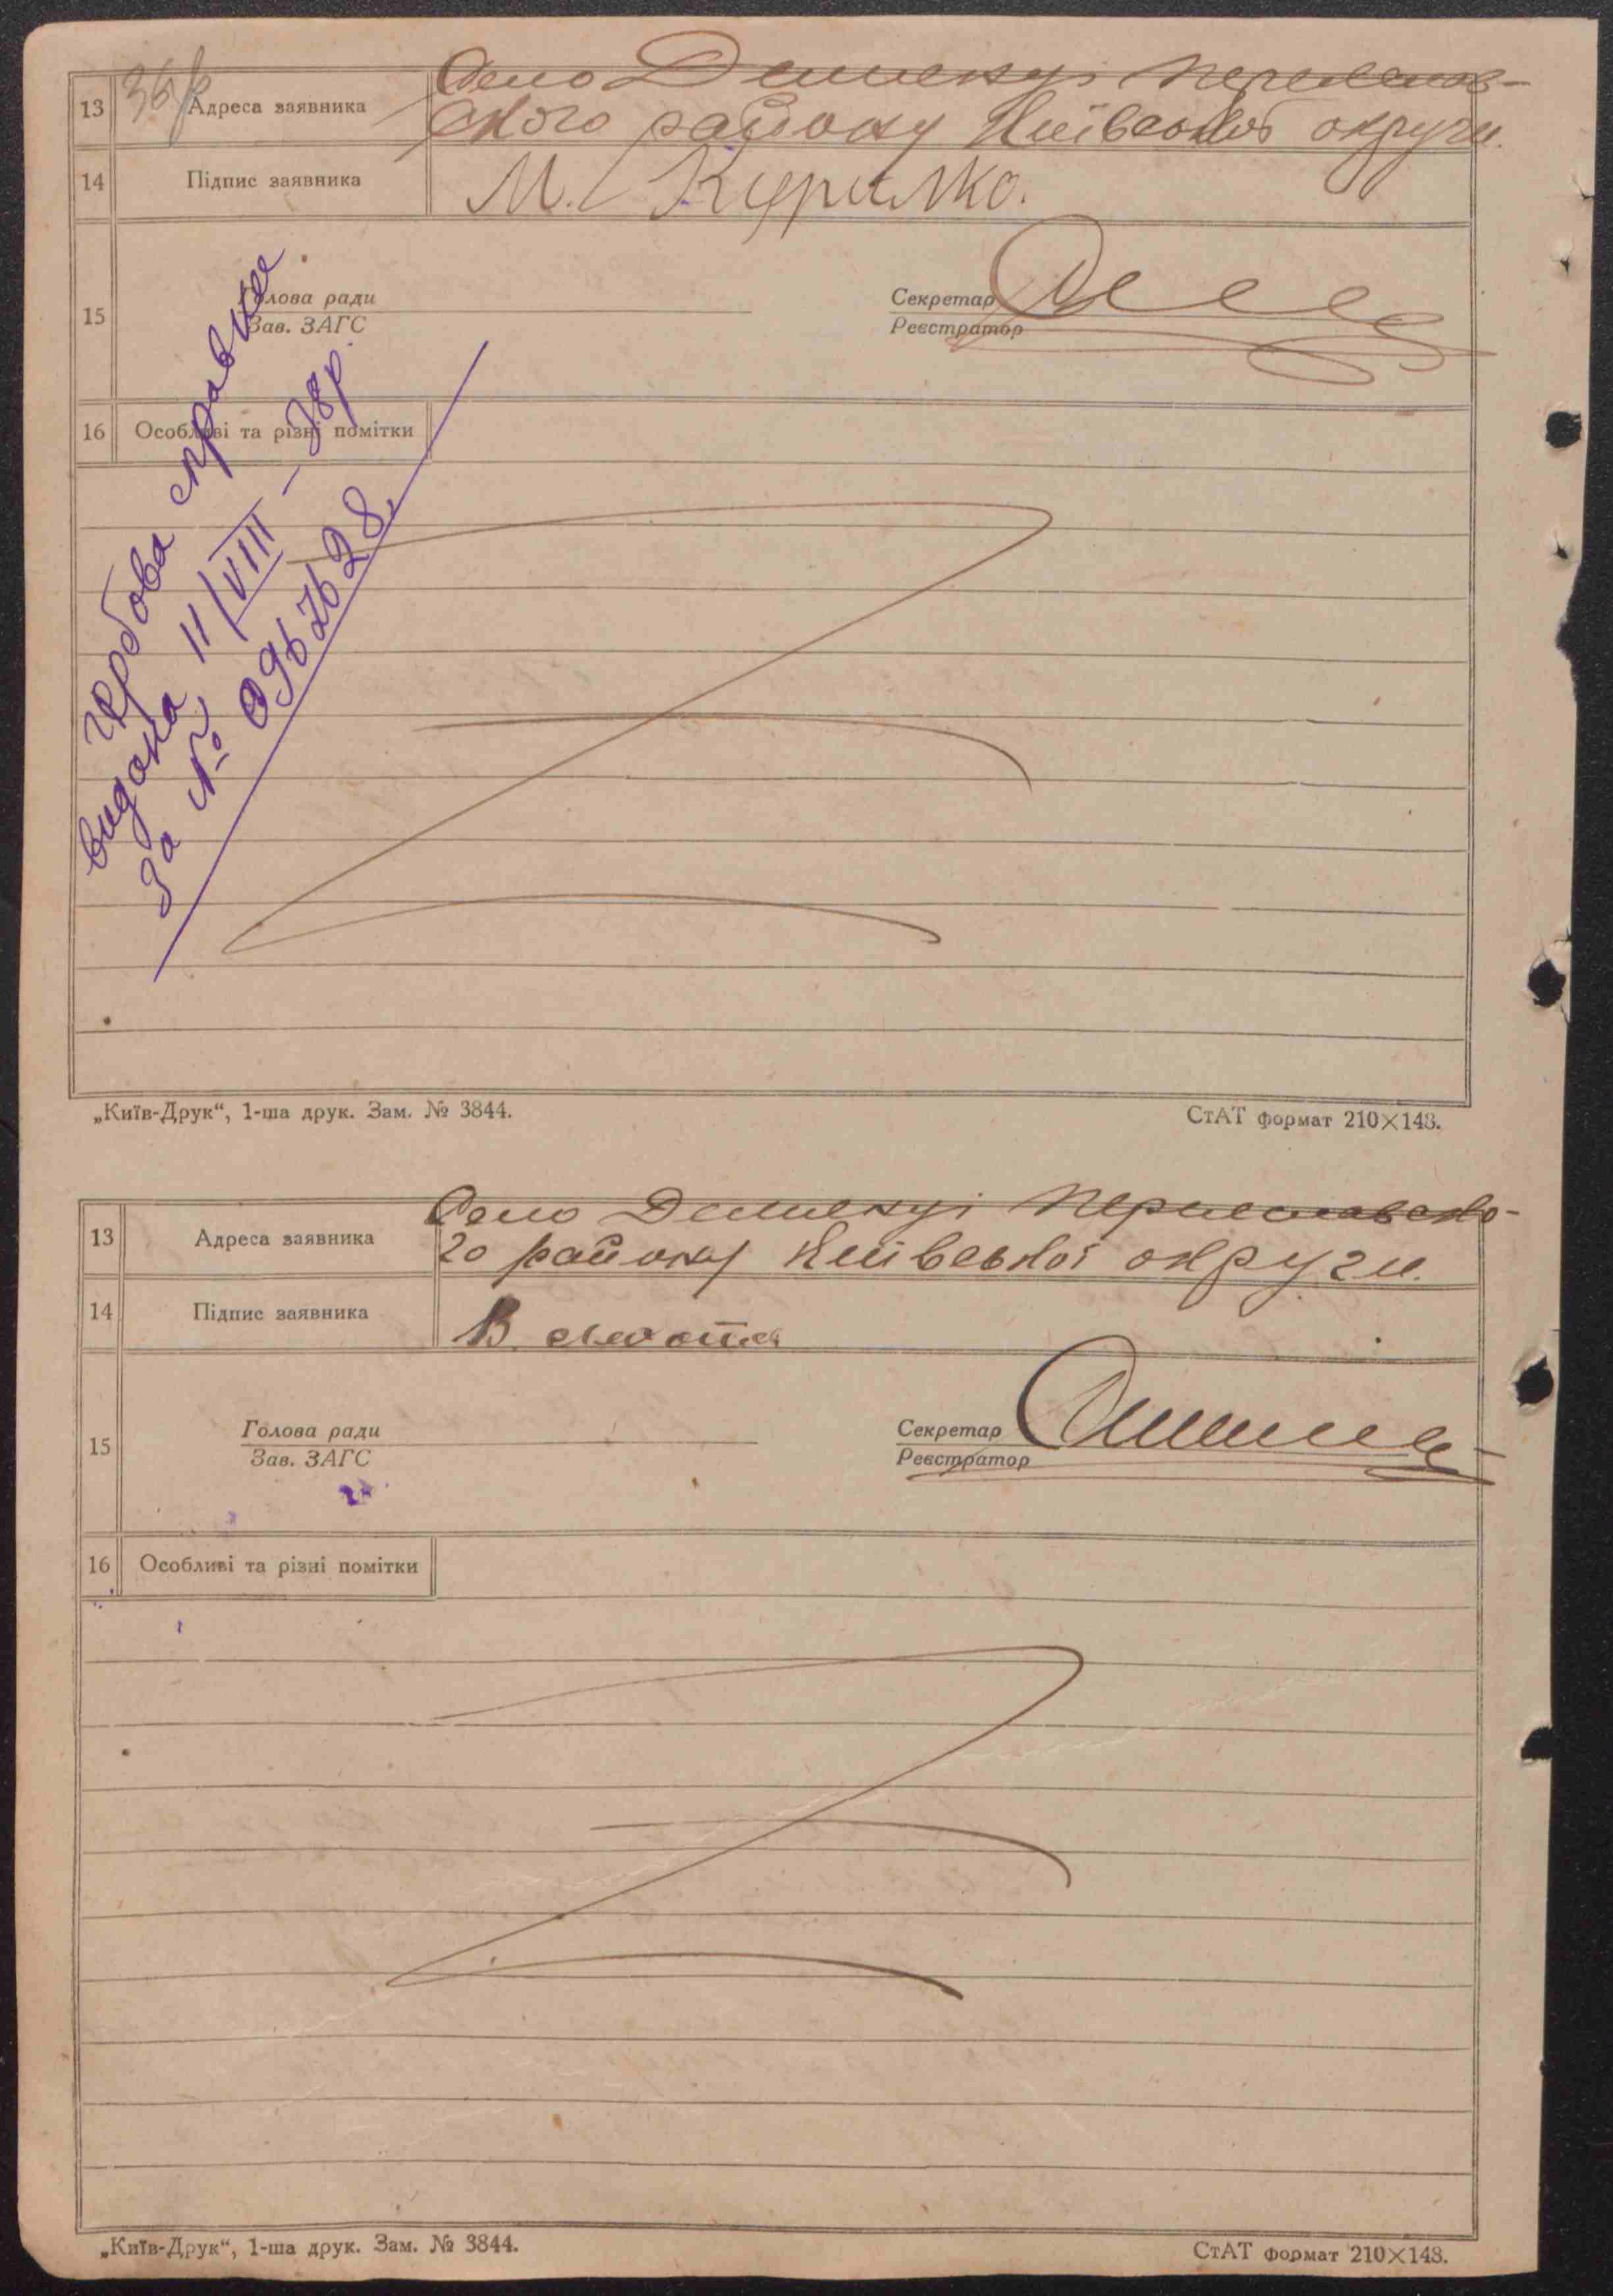 13
Адреса заявника
Село Демьянці Переяслав-
ского району Київської округи.
14
Підпис заявника
М. Курилко.
15
Голова ради
Зав. ЗАГС
Секретар
Реєстратор
16
Особливі та різні помітки
гербова справка
видана 11/VIII – 38р.
За №
„Київ-Друк“, 1-ша друк. Зам. № 3844.
СтАТ формат 210×148.
13
Адреса заявника
Село Демьянці Переяславсько-
го району Київської округи.
14
Підпис заявника
В.
15
Голова ради
Зав. ЗАГС
Секретар
Реєстратор
16
Особливі та різні помітки
„Київ-Друк“, 1-ша друк. Зам. № 3844.
СтАТ формат 210×148.